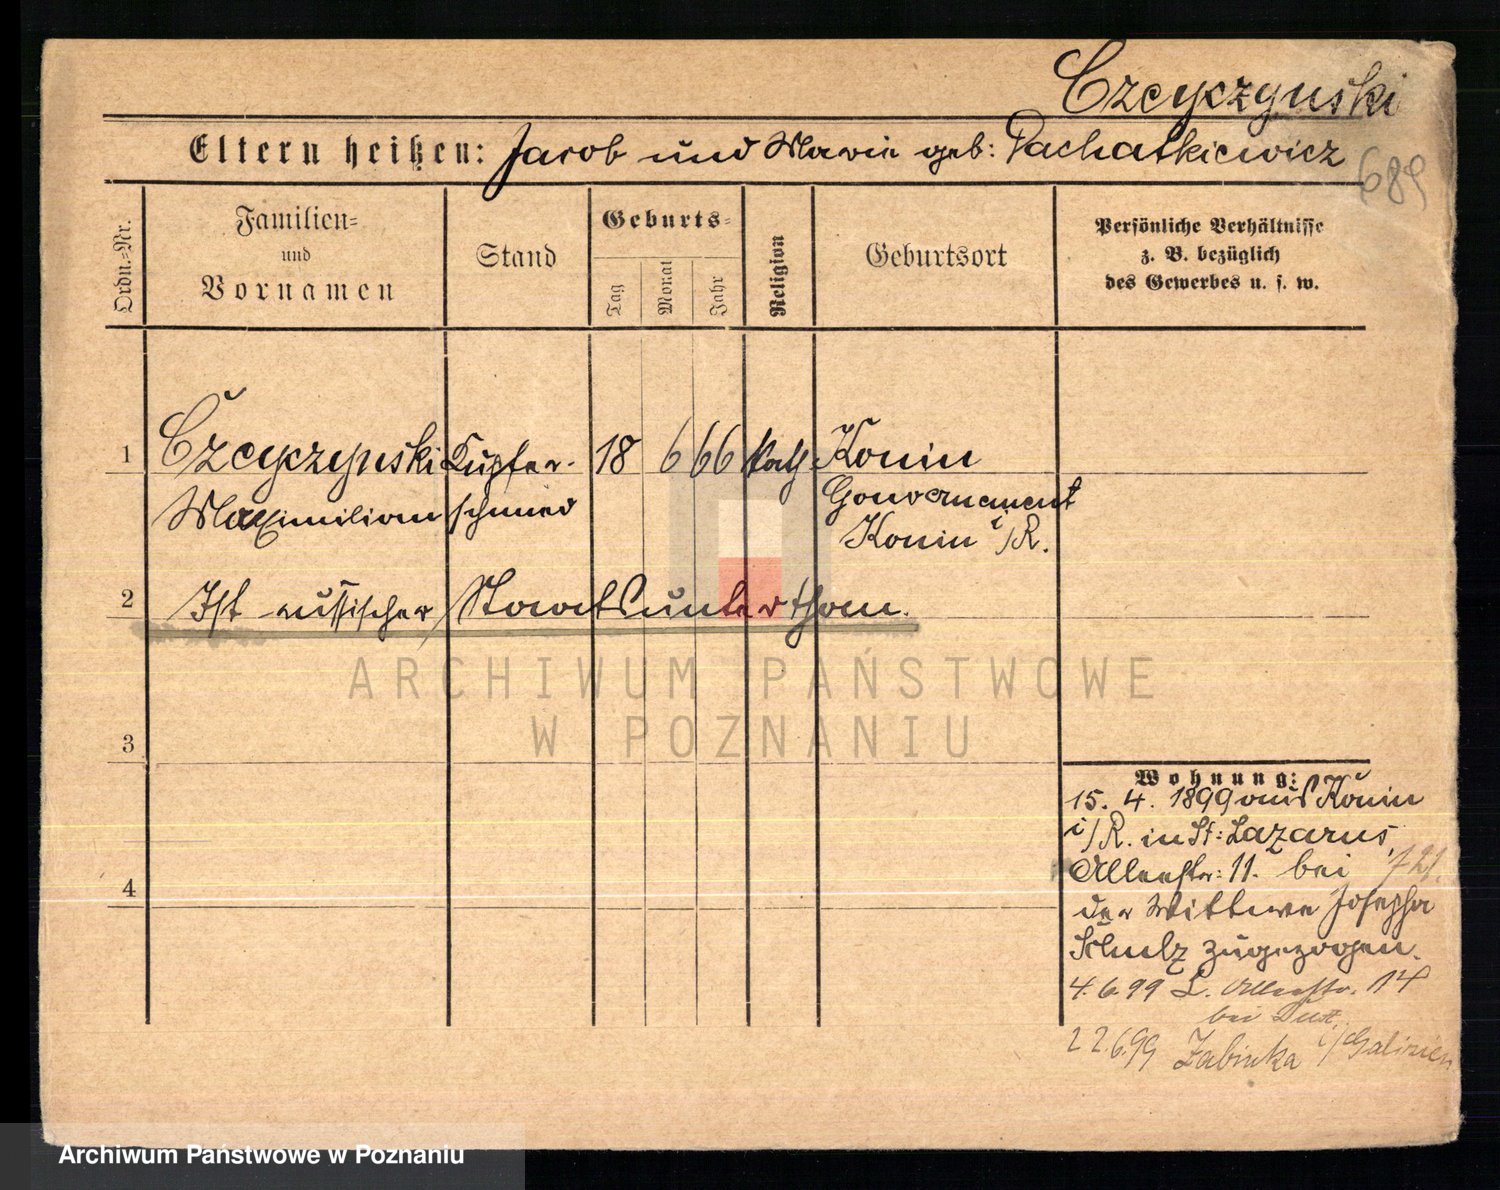 Czcyczynski
Eltern heißen: Jacob und Marie geb: Pachatkiewicz
689
Ordn.-Nr.
Familien-
und
Vornamen
Stand
Geburts-
Tag
Monat
Jahr
Religion
Geburtsort
Persönliche Verhältnisse
z. B. bezüglich
des Gewerbes u. s. w.
1 Czcyczynski Kupfer- 18 6 66 kath. Konin
Maximilian schmied Gouvernement
Konin i/R.
2 Ist russischer Staatsunterthan.
ARCHIWUM PAŃSTWOWE
W POZNANIU
3
4
Wohnung:
15. 4. 1899 aus Konin
i/R. in St: Lazarus,
Alleestr: 11. bei 721.
der Wittwe Josepha
Schulz zugezogen.
4.6.99 L. Alleestr. 14
bei
22.6.99 Zabinka i/Galizien
Archiwum Państwowe w Poznaniu